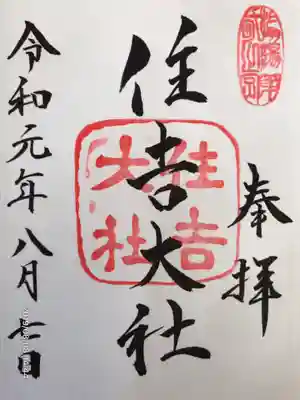 奉拝
住吉大社
住吉
大社
令和元年八月七日